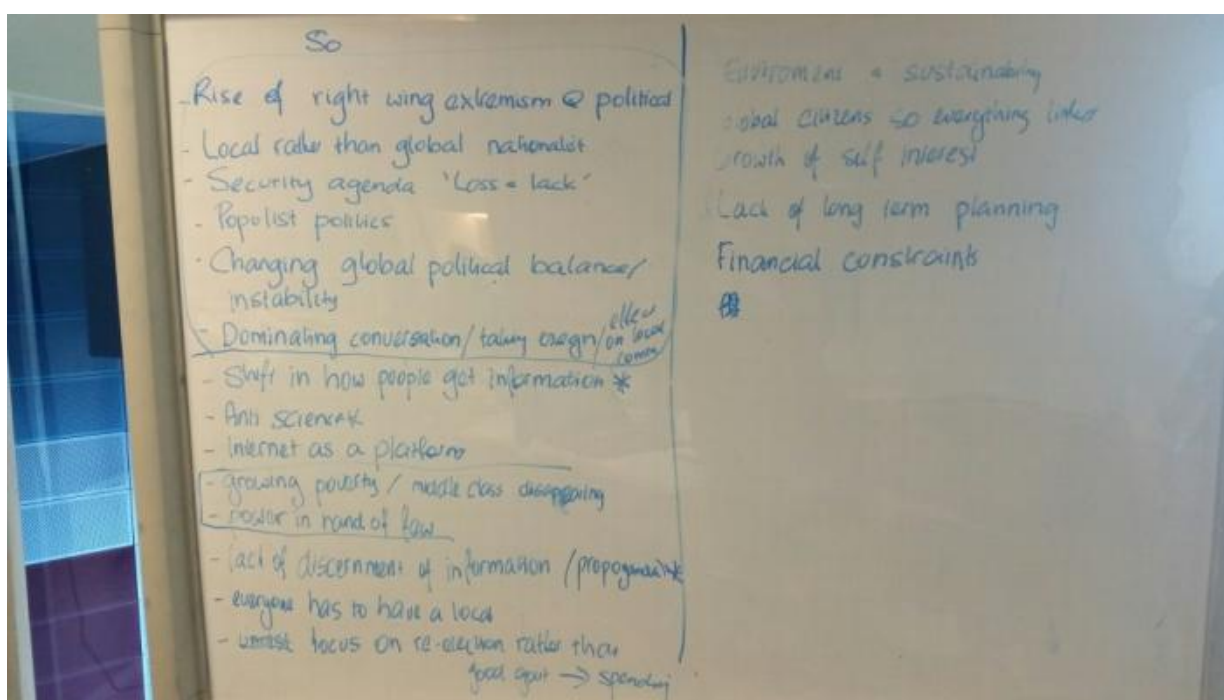 So
- Rise of right wing extremism @ political
- Local rather than global nationalist
- Security agenda 'Loss = lack'
- Populist politics
- Changing global political balance/
instability
- Dominating conversation/ taking
on local
- Shift in how people get information *
- Anti science *
- Internet as a platform
- growing poverty / middle class disappearing
- in hand of few
- lack of discernment of information /
- everyone has to have a local
- focus on re-election rather than
good govt → spending
Enviroment + sustainability
global citizens so everything links
growth of self interest
Lack of long term planning
Financial constraints